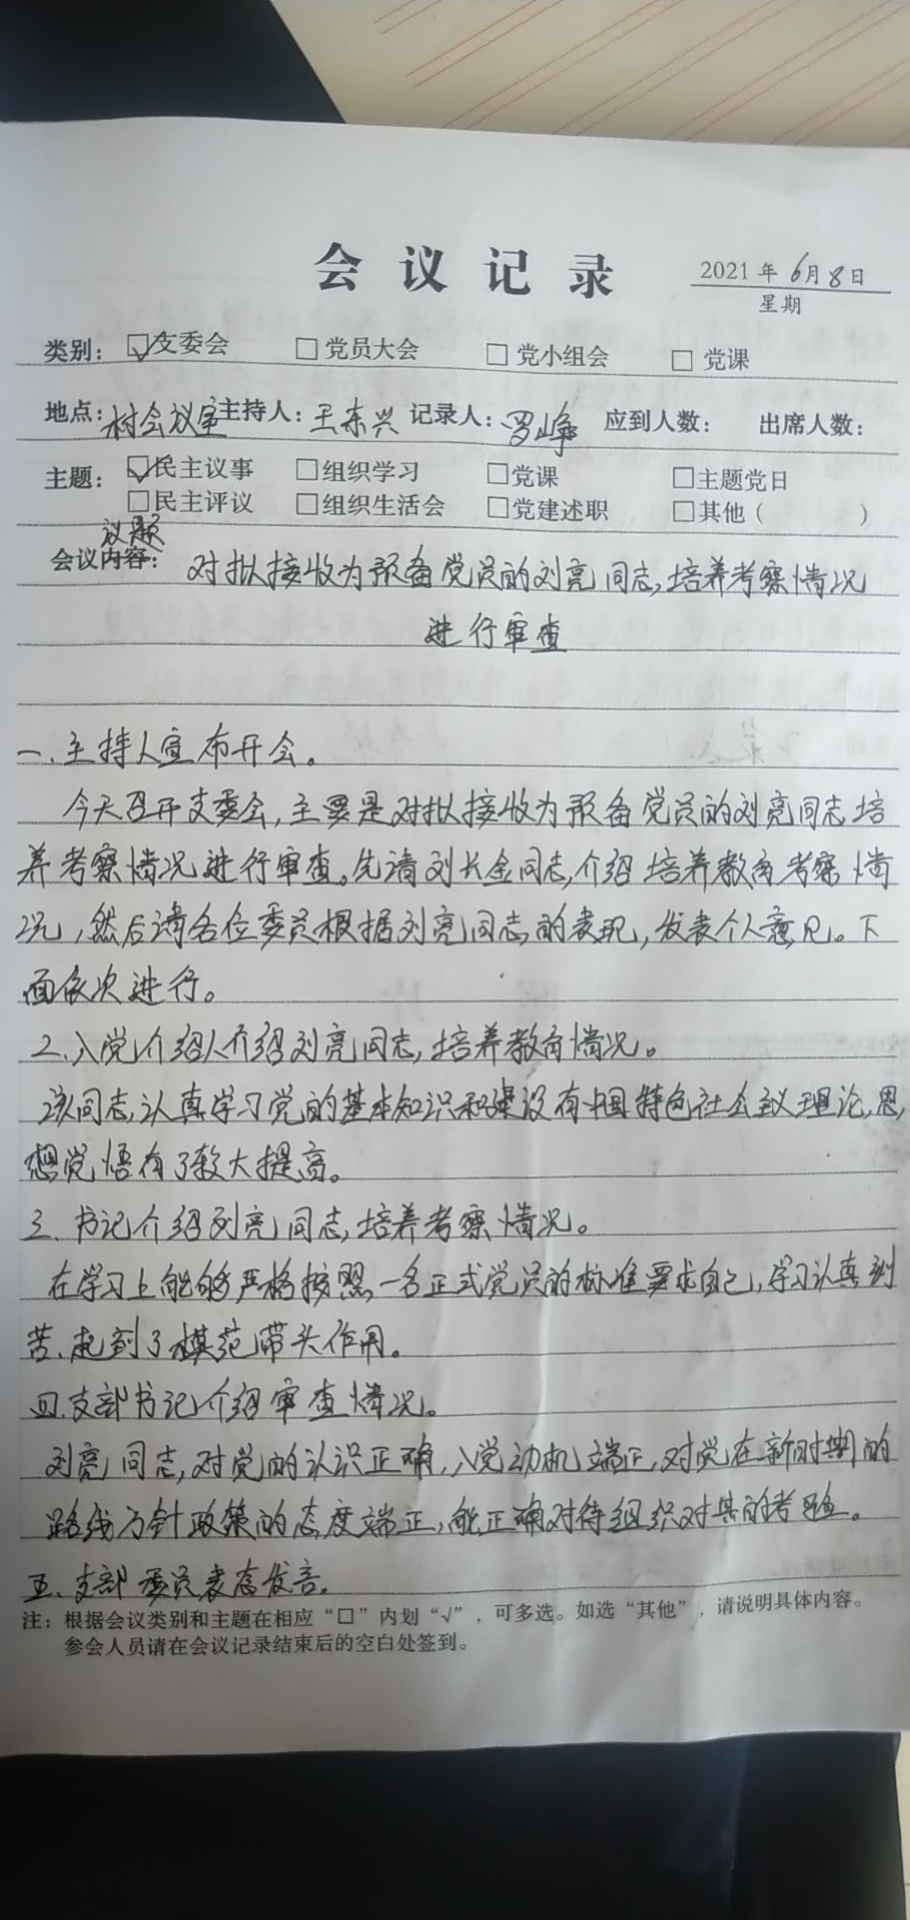 会议记录
2021年6月8日
星期
类别： ☑支委会 □党员大会 □党小组会 □党课
地点：村会议室 主持人：王东兴 记录人：罗峰 应到人数： 出席人数：
主题： ☑民主议事 □组织学习 □党课 □主题党日
□民主评议 □组织生活会 □党建述职 □其他（ ）
议题
会议内容：对拟接收为预备党员的刘亮同志,培养考察情况
进行审查
一.主持人宣布开会。
今天召开支委会,主要是对拟接收为预备党员的刘亮同志培
养考察情况进行审查。先请刘长金同志,介绍培养教育考察情
况,然后请各位委员根据刘亮同志的表现,发表个人意见。下
面依次进行。
2.入党介绍人介绍刘亮同志,培养教育情况。
该同志,认真学习党的基本知识和建设有中国特色社会主义理论,思
想觉悟有了较大提高。
三.书记介绍刘亮同志,培养考察情况。
在学习上能够严格按照一名正式党员的标准要求自己,学习认真刻
苦、起到了模范带头作用。
四.支部书记介绍审查情况。
刘亮同志,对党的认识正确,入党动机端正,对党在新时期的
路线方针政策的态度端正,能正确对待组织对其的考验。
五.支部委员表态发言。
注：根据会议类别和主题在相应“□”内划“√”，可多选。如选“其他”，请说明具体内容。
参会人员请在会议记录结束后的空白处签到。